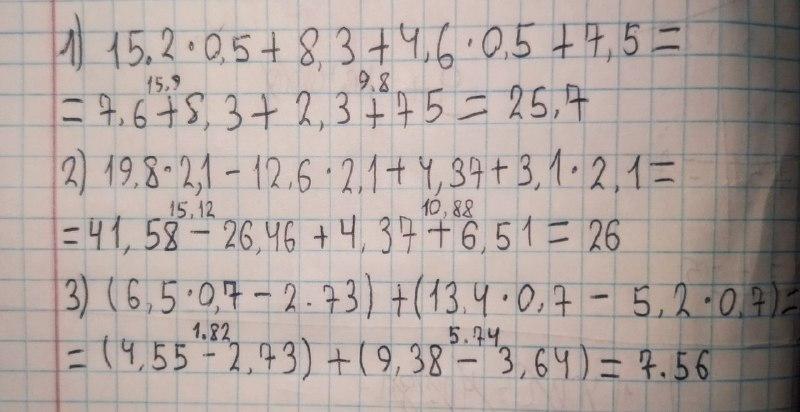 1) 15.2·0,5+8,3+4,6·0,5+7,5=
15,9 9,8
=7,6+8,3+2,3+75=25,7
2) 19,8·2,1-12,6·2,1+4,37+3,1·2,1=
15,12 10,88
=41,58-26,46+4,37+6,51=26
3) (6,5·0,7-2.73)+(13,4·0,7-5,2·0,7)=
1.82 5.74
=(4,55-2,73)+(9,38-3,64)=7.56